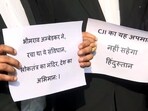 श्रीमराव अम्बेडकर ने,
रचा था ये संविधान,
लोकतंत्र का मंदिर, देश का
अभिमान.।
CJI का यह अपमान
नहीं सहेगा
हिंदुस्तान